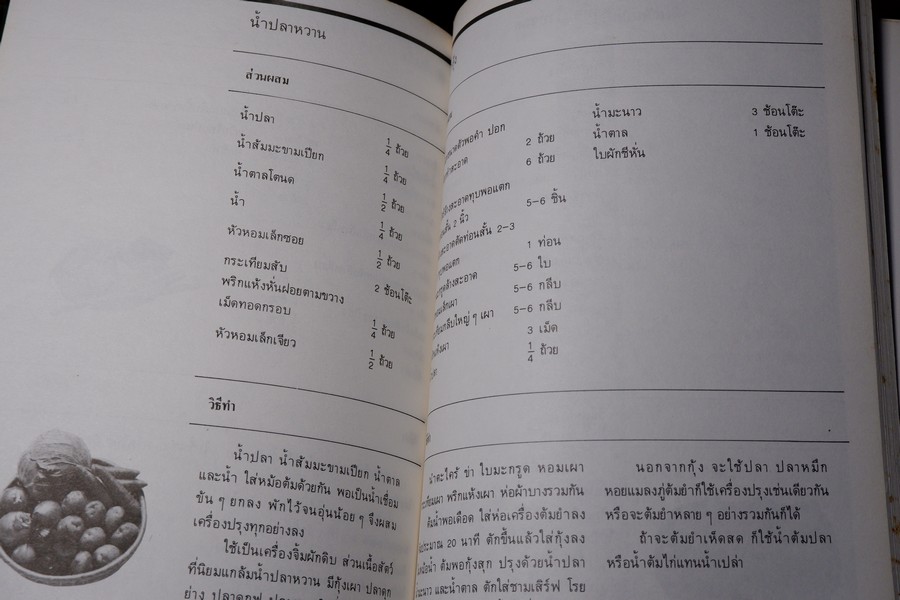 น้ำปลาหวาน
ส่วนผสม
น้ำปลา 1/4 ถ้วย
น้ำส้มมะขามเปียก 1/4 ถ้วย
น้ำตาลโตนด 1/2 ถ้วย
น้ำ 1/4 ถ้วย
หัวหอมเล็กซอย 1/2 ถ้วย
กระเทียมสับ 2 ช้อนโต๊ะ
พริกแห้งหั่นฝอยตามขวาง
เม็ดทอดกรอบ 1/4 ถ้วย
หัวหอมเล็กเจียว 1/2 ถ้วย
วิธีทำ
น้ำปลา น้ำส้มมะขามเปียก น้ำตาล
และน้ำ ใส่หม้อต้มด้วยกัน พอเป็นน้ำเชื่อม
ข้น ๆ ยกลง พักไว้จนอุ่นน้อย ๆ จึงผสม
เครื่องปรุงทุกอย่างลง
ใช้เป็นเครื่องจิ้มผักดิบ ส่วนเนื้อสัตว์
ที่นิยมแกล้มน้ำปลาหวาน มีกุ้งเผา ปลาดุก
ย่าง ปลาดุกฟู
ขนาดตัวพอคำ ปอก
2 ถ้วย
6 ถ้วย
สะอาดทุบพอแตก
สั้น 2 นิ้ว 5-6 ชิ้น
สะอาดตัดท่อนสั้น 2-3
พอแตก 1 ท่อน
ล้างสะอาด 5-6 ใบ
เล็กเผา 5-6 กลีบ
กลีบใหญ่ ๆ เผา 5-6 กลีบ
แห้งเผา 3 เม็ด
1/4 ถ้วย
น้ำมะนาว 3 ช้อนโต๊ะ
น้ำตาล 1 ช้อนโต๊ะ
ใบผักชีหั่น
นำตะไคร้ ข่า ใบมะกรูด หอมเผา
กระเทียมเผา พริกแห้งเผา ห่อผ้าบางรวมกัน
ต้มน้ำพอเดือด ใส่ห่อเครื่องต้มยำลง
ประมาณ 20 นาที ตักขึ้นแล้วใส่กุ้งลง
ต้มพอกุ้งสุก ปรุงด้วยน้ำปลา
และน้ำตาล ตักใส่ชามเสิร์ฟ โรย
นอกจากกุ้ง จะใช้ปลา ปลาหมึก
หอยแมลงภู่ต้มยำก็ใช้เครื่องปรุงเช่นเดียวกัน
หรือจะต้มยำหลาย ๆ อย่างรวมกันก็ได้
ถ้าจะต้มยำเห็ดสด ก็ใช้น้ำต้มปลา
หรือน้ำต้มไก่แทนน้ำเปล่า